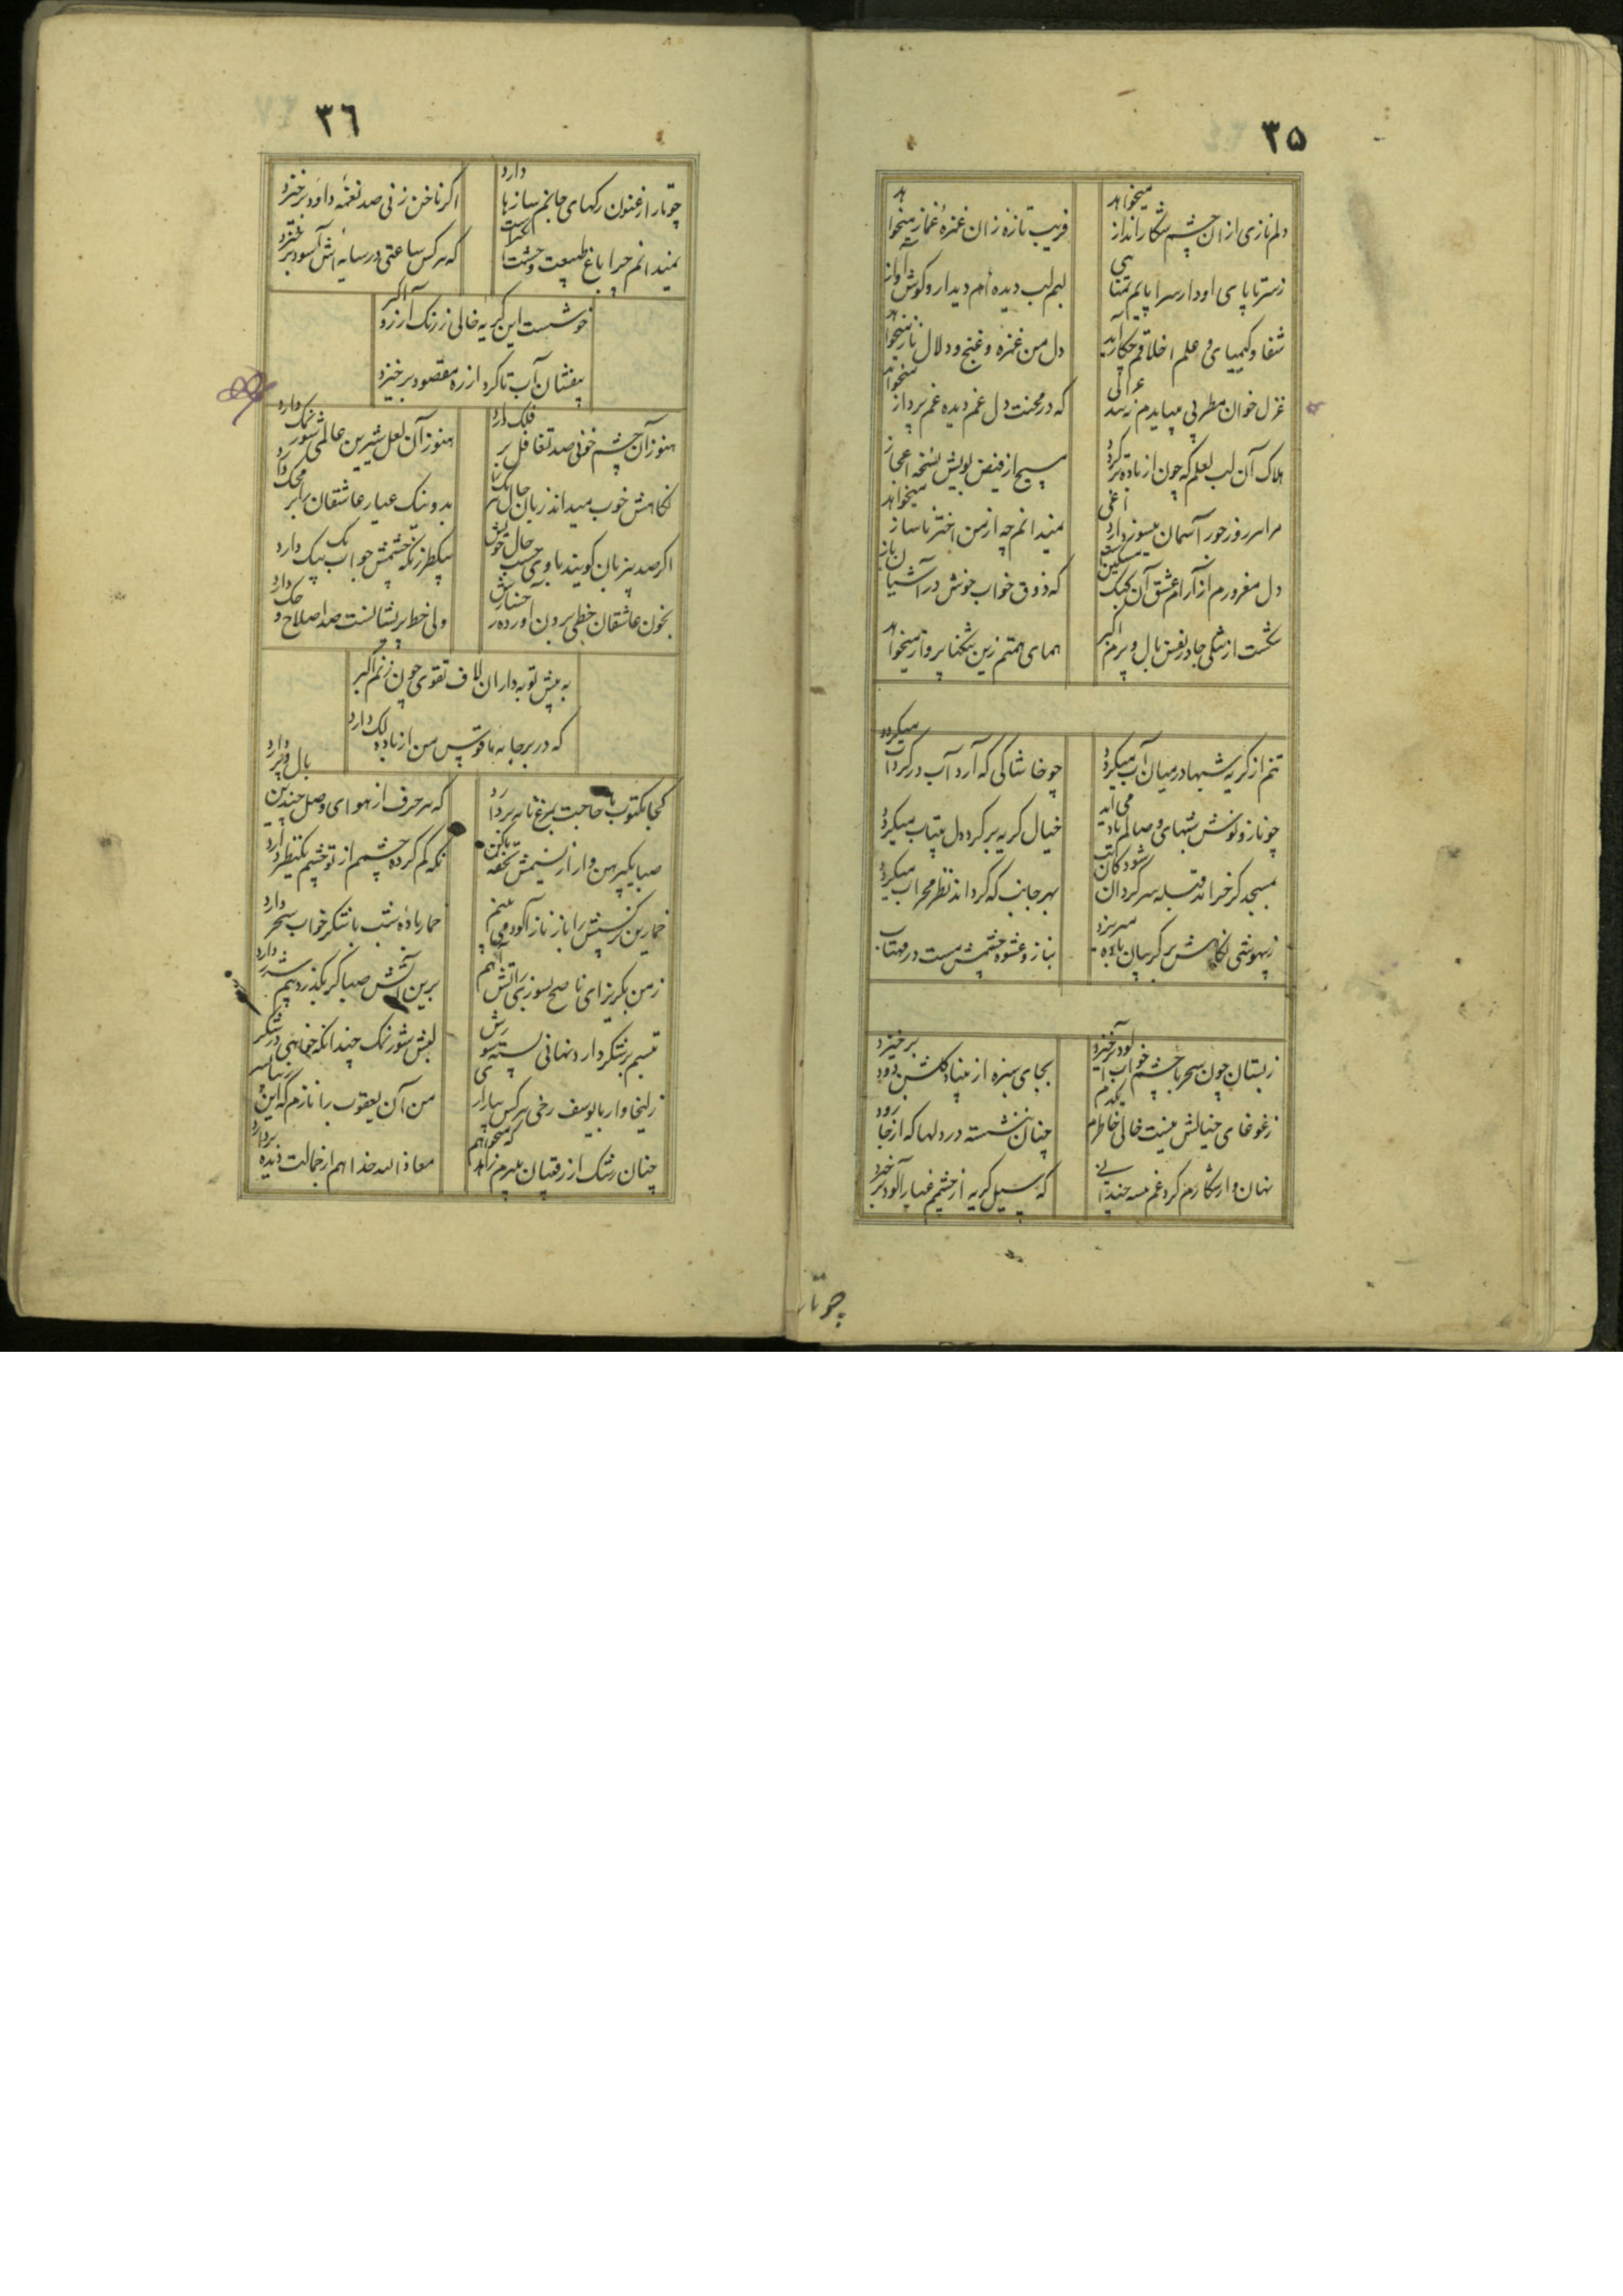 ۳۵
دلم نازی ازان چشم شکار انداز میخواهد
فریب تازه زان غمزهٔ غماز میخواهد
ز سر تا پای او دارد سراپایم تمنایی
لبم لب دیده‌ام دیدار و گوش آواز
شفا و کیمیای و علم اخلاقم چکار آید
دل من غمزه و غنج و دلال ناز میخواهد
غزل خوان مطربی میبایدم
که در محنت دل غم دیده غم پرداز میخواهد
هلاک آن لب لعلم که چون از باده تر گردد
مسیح از فیض لبویش نسخه اعجاز میخواهد
مرا سر روز خور آسمان میسوزد از داغی
نمیدانم چه از من اختر ناساز
دل مغرورم از آرام عشق آن کبک مسکین
که ذوق خواب خوش در آشیان باز
شکست از تنگی جا در قفس بال و پرم اکبر
همای همتم زین تنگنا پرواز میخواهد
تنم از گریه شبها در میان آب میگردد
چو خاشاکی که آرد آب در گرداب میگردد
چو ناز و نوش شبهای وصالم یاد می آید
خیال گریه بر گرد دل بیتاب میگردد
بمسجد گر خرامد قبله سرگردان شود
بهر جانب که گرداند نظر محراب میگردد
ز بیهوشی نگاهش بر گریبان باده میریزد
بناز و عشوه چشمش مست در مهتاب
ز بستان چون سحر با چشم خواب آلود برخیزد
بجای سبزه از بنیاد گلشن دود برخیزد
ز غوغای خیالش نیست خالی خاطرم یکدم
چنان ننشسته در دلها که از جا زود
نهان و آشکارم کرد غم
که سیل گریه از چشمم غبار آلود برخیزد
چو تار
۳٦
چو تار ارغنون رگهای جانم سازها دارد
اگر ناخن زنی صد نغمهٔ داود برخیزد
نمیدانم چرا باغ طبیعت وحشت
که هر کس ساعتی در سایه‌اش آسود برخیزد
خوشست این گریه خالی ز رنگ آرزو اکبر
بیفشان آب تا گرد از ره مقصود برخیزد
هنوز آن چشم خونی صد تغافل بر فلک دارد
هنوز آن لعل شیرین عالمی شور نمک دارد
نگاهش خوب میداند زبان حال
بد و نیک عیار عاشقان را بر محک دارد
اگر صد بیزبان گویند با وی حسب حال خویش
بیکطرز نگه چشمش جواب یک بیک دارد
بخون عاشقان خطی برون آورده رخسارش
ولی خط پریشانست صد اصلاح و حک دارد
به پیش توبه داران لاف تقوی چون زنم اکبر
که در بر جابه ناقوس من از باده لک دارد
کجا مکتوب ما حاجت بمرغ نامه بر دارد
که هر حرف از هوای وصل چندین بال و پر دارد
صبا یک پیرهن وار از نسیمش تحفه
نگه گم کرده چشمم از تو چشم یکنظر دارد
خمارین نرگسش را باز ناز آلود می بینم
خمار بادهٔ شب با شکرخواب سحر دارد
ز من بگریز ای ناصح بسوز سینه‌ام
برین آتش صبا گر بگذرد بیم شرر دارد
تبسم بر شکر دارد نهانی پسته شورش
لبش شور نمک چندانکه خواهی در شکر
زلیخا وار با یوسف رخی هر کس
من آن یعقوب را نازم که این
چنان رشک از رقیبان میبرم که میخواهم
معاذ الله خدا هم از جمالت دیده بردارد